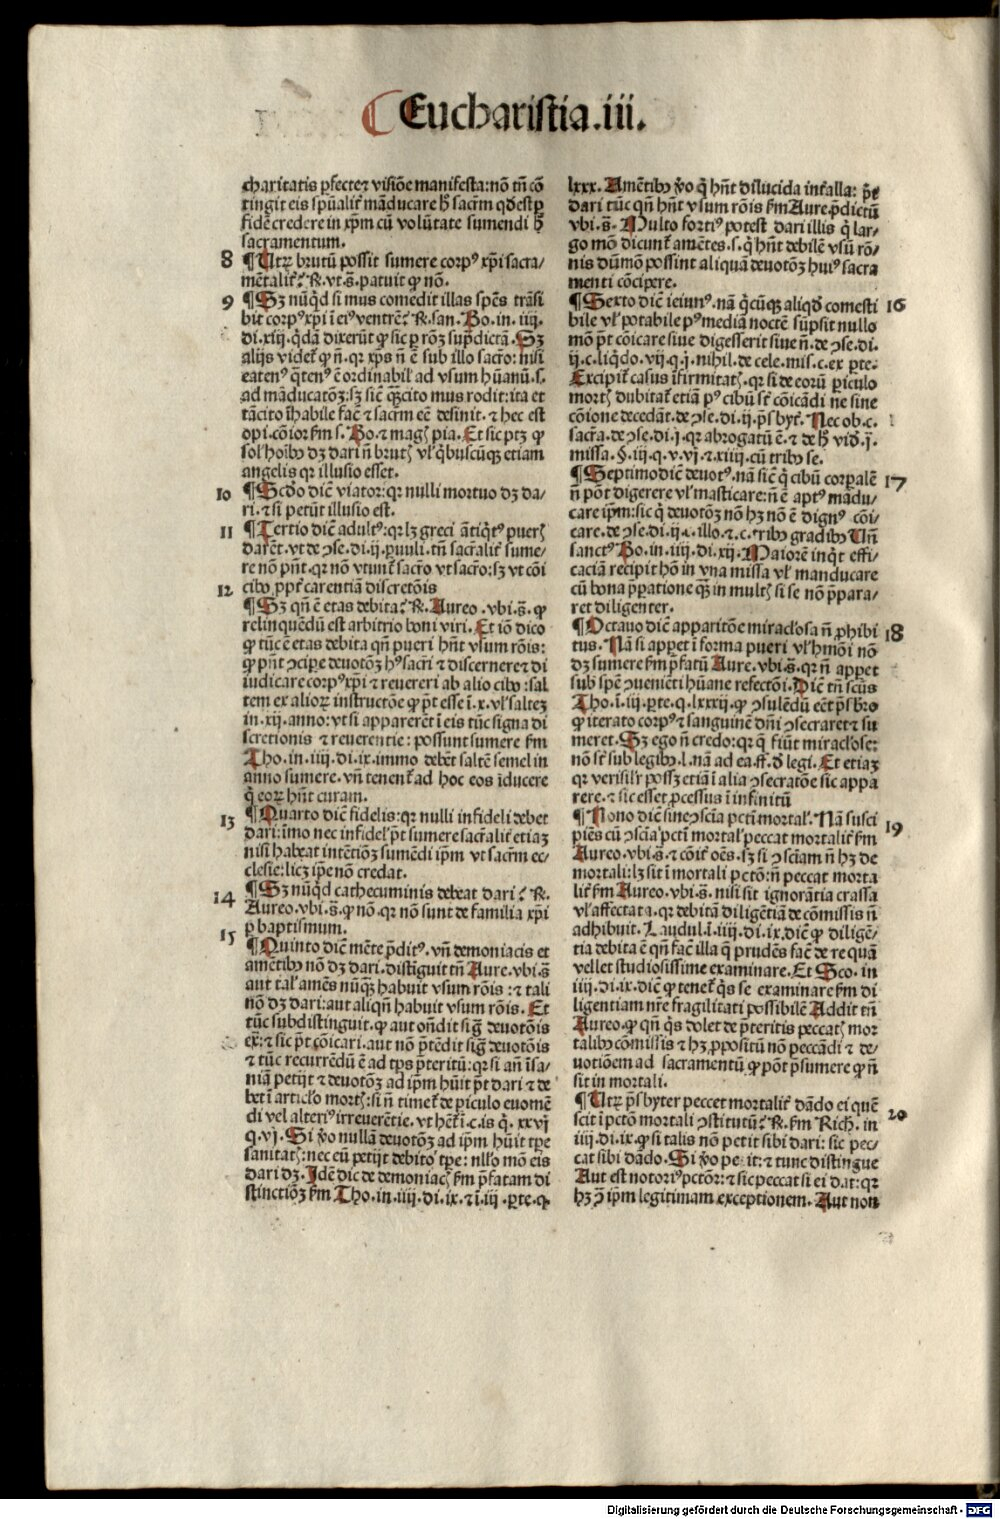 Eucharistia.iii.
charitatis ꝑfecte⁊ visiõe manifesta:nõ tñ cõ
tingit eis spũalit̃ mãducare h̃ sacr̃m qd̃est ꝑ
fidẽ credere in xp̃m cũ volũtate sumendi h̃
sacramentum.
8 ¶Utrꝝ brutũ possit sumere corpꝰ xp̃i sacra⸗
mẽtalit̃? ꝶ. vt.s̃. patuit ꝙ nõ.
9 ¶Sꝫ nũqd̃ si mus comedit illas sp̃es trãsi
bit corpꝰ xp̃i ĩ eiꝰ ventrẽ? ꝶ.san. Bo. in. iiij.
di.xiij. q̃dã dixerũt ꝙ sic ꝑ rõꝫ sup̃dictã. Sꝫ
alijs videt̃ ꝙ ñ. qꝛ xp̃s ñ ẽ sub illo sacr̃o: nisi
eatenꝰ q̃tenꝰ ẽ ordinabil̃ ad vsum hũanũ.s.
ad mãducatõꝫ: sꝫ sic̃ q̃ꝫcito mus rodit: ita et
tãcito ĩhabile fac̃ ⁊ sacr̃m eẽ desinit. ⁊ hec est
opi.cõior ẜm s. Bo. ⁊ magr̃ꝫ pia. Et sic ptꝫ ꝙ
sol̃ hoĩbꝰ dꝫ dari ñ brutꝭ vl̃ q̃buscũqꝫ etiam
angelis qꝛ illusio esset.
10 ¶Scd̃o dic̃ viator: qꝛ nulli mortuo dꝫ da⸗
ri. ⁊ si petũt illusio est.
11 ¶Tertio dic̃ adultꝰ: qꝛ lꝫ greci ãtiq̃tꝰ puerꝭ
darẽt. vt de ꝯse. di. ij. ꝑuuli. tñ sacr̃alit̃ sume⸗
re nõ pñt. qꝛ nõ vtunt̃ sacr̃o vt sacr̃o: sꝫ vt cõi
12 cibo ꝓpt̃ carentiã discretõis
¶Sꝫ qñ ẽ etas debita? ꝶ. Aureo .vbi.s̃. ꝙ
relinquẽdũ est arbitrio boni viri. Et iõ dico
ꝙ tũc ẽ etas debita qñ pueri hñt vsum rõis:
ꝙ pñt ꝯciꝑe deuotõꝫ hꝰ sacr̃i ⁊ discernere ⁊ di
iudicare corpꝰ xp̃i ⁊ reuereri ab alio cibo: sal
tem ex alioꝝ instructõe ꝙ p̃t esse ĩ.x. vl̃ salteꝫ
in.xij.anno: vt si apparerẽt ĩ eis tũc signa di
scretionis ⁊ reuerentie: possunt sumere ẜm
Tho. in. iiij. di. ix. immo debẽt saltẽ semel in
anno sumere. vñ tenent̃ ad hoc eos ĩducere
q̃ eoꝝ hñt curam.
13 ¶Quarto dic̃ fidelis: qꝛ nulli infideli debet
dari: ĩmo nec infidel̃ p̃t sumere sacr̃alit̃ etiaꝫ
nisi habeat intẽtiõꝫ sumẽdi ip̃m vt sacr̃m ec⸗
clesie: licꝫ ip̃e nõ credat.
14 ¶Sꝫ nũqd̃ cathecuminis debeat dari? ꝶ.
Aureo.vbi.s̃. ꝙ nõ. qꝛ nõ sunt de familia xp̃i
15 ꝑ baptismum.
¶Quinto dic̃ mẽte p̃ditꝰ. vñ demoniacis et
amẽtibꝰ nõ dꝫ dari. distiguit tñ Aure. vbi.s̃
aut tal̃ amẽs nũqꝫ habuit vsum rõis: ⁊ tali
nõ dꝫ dari: aut aliqñ habuit vsum rõis. Et
tũc subdistinguit. ꝙ aut oñdit sig̃ deuotõis
ex̃: ⁊ sic p̃t cõicari. aut nõ p̃tẽdit sig̃ deuotõis
⁊ tũc recurrẽdũ ẽ ad tp̃s p̃teritũ: qꝛ si añ ĩsa⸗
niã petijt ⁊ deuotõꝫ ad ip̃m hũit p̃t dari ⁊ de
bet ĩ articl̃o mortꝭ: si ñ timet̃ de ꝑiculo euomẽ
di vel alteriꝰ irreuerẽtie. vt hẽt̃ ĩ.c.is q̃. xxvj
q.vj. Si ṽo nullã deuotõꝫ ad ip̃m hũit tꝑe
sanitatꝭ: nec eũ petijt debito tꝑe: nl̃lo mõ eis
dari dꝫ. Idẽ dic de demoniacꝭ ẜm p̃fatam di
stinctiõꝫ ẜm Tho. in. iiij. di. ix. ⁊ ĩ. iij. ꝑte. q.
lxxx. Amẽtibꝰ ṽo q̃ hñt dilucida int̃ualla: p̃t̃
dari tũc qñ hñt vsum rõis ẜm Aure p̃dictũ
vbi.s̃. Multo fortiꝰ potest dari illis q̃ lar⸗
go mõ dicunt̃ amẽtes. s. q̃ hñt debilẽ vsũ rõ⸗
nis dũmõ possint aliquã deuotõꝫ huiꝰ sacra
menti cõcipere.
¶Sexto dic̃ ieiunꝰ. nã q̃cũqꝫ aliqd̃ comesti 16
bile vl̃ potabile pꝰ mediã noctẽ sũpsit nullo
mõ p̃t cõicare siue digesserit siue ñ. de ꝯse. di.
ij. c. liq̃do. vij. q. j. nihil. de cele. mis. c. ex ꝑte.
Excipit̃ casus ĩfirmitatꝭ. qꝛ si de eorũ ꝑiculo
mortꝭ dubitat̃ etiã pꝰ cibũ st̃ cõicãdi ne sine
cõione decedãt. de ꝯse. di. ij. p̃sbyt̃. Nec ob. c.
sacr̃a. de ꝯse. di. j. qꝛ abrogatũ ẽ. ⁊ de h̃ vid̃. j̃.
missa. §. iij. q. v. vj. ⁊. xiiij. cũ tribꝰ se.
¶Septimo dic̃ deuotꝰ. nã sic̃ q̃ cibũ corꝑalẽ 17
ñ põt digerere vl̃ masticare: ñ ẽ aptꝰ mãdu⸗
care ip̃m: sic q̃ deuotõꝫ nõ hꝫ nõ ẽ dignꝰ cõi⸗
care. de ꝯse. di. ij. c. illo. ⁊. c. tribꝰ gradibꝰ Uñ
sanctꝰ Bo. in. iiij. di. xij. Maiorẽ inq̃t effi⸗
caciã recipit hõ in vna missa vl̃ manducare
cũ bona p̃ꝑatione q̃ꝫ in multꝭ si se nõ p̃para⸗
ret diligenter.
¶Octauo dic̃ apparitõe miracl̃osa ñ ꝓhibi 18
tus. Nã si appet̃ ĩ forma pueri vl̃ hmõi nõ
dꝫ sumere ẜm p̃fatũ Aure. vbi.s̃. qꝛ ñ appet̃
sub spẽ ꝯueniẽti hũane refectõi. Dic̃ tñ sctũs
Tho. ĩ. iij. ꝑte. q. lxxxij. ꝙ ꝯsulẽdũ eẽt p̃sbr̃o
ꝙ iterato corpꝰ ⁊ sanguinẽ dñi ꝯsecraret ⁊ su
meret. Sꝫ ego ñ credo: qꝛ q̃ fiũt miracl̃ose:
nõ st̃ sub legibꝰ. l. nã ad ea. ff. d̃ legi. Et etiaꝫ
qꝛ verisil̃r possꝫ etiã ĩ alia ꝯsecratõe sic appa
rere. ⁊ sic esset ꝓcessus ĩ infinitũ
¶Nono dic̃ sine ꝯscĩa pctĩ mortal̃. Nã susci 19
piẽs cũ ꝯscĩa pctĩ mortal̃ peccat mortalit̃ ẜm
Aureo.vbi.s̃. ⁊ cõit̃ oẽs. sꝫ si ꝯscĩam ñ hꝫ de
mortali: lꝫ sit ĩ mortali pctõ: ñ peccat morta
lit̃ ẜm Aureo. vbi.s̃. nisi sit ignorãtia crassa
vl̃ affectata. qꝛ debitã diligẽtiã de cõmissis ñ
adhibuit. Laudul. ĩ. iiij. di. ix. dic̃ ꝙ diligẽ⸗
tia debita ẽ qñ fac̃ illa q̃ prudẽs fac̃ de re quã
vellet studiosissime examinare. Et Sco. in
iiij. di. ix. dic̃ ꝙ tenet̃ q̃s se examinare ẜm di
ligentiam nr̃e fragilitati possibilẽ Addit tñ
Aureo. ꝙ qñ q̃s dolet de p̃teritis peccatꝭ mor
talibꝰ cõmissis ⁊ hꝫ ꝓpositũ nõ peccãdi ⁊ de⸗
uotiõem ad sacramentũ ꝙ põt p̃sumere ꝙ ñ
sit in mortali.
¶Utrꝝ p̃sbyter peccet mortalit̃ dãdo ei quẽ 20
scit ĩ pctõ mortali ꝯstitutũ? ꝶ. ẜm Rich̃. in
iiij. di. ix. ꝙ si talis nõ petit sibi dari: sic pec⸗
cat sibi dãdo. Si ṽo petit: ⁊ tunc distingue
Aut est notoriꝰ pctõr: ⁊ sic peccat si ei dat: qꝛ
hꝫ ꝯ̃ ip̃m legitimam exceptionem. Aut non
Digitalisierung gefördert durch die Deutsche Forschungsgemeinschaft - DFG